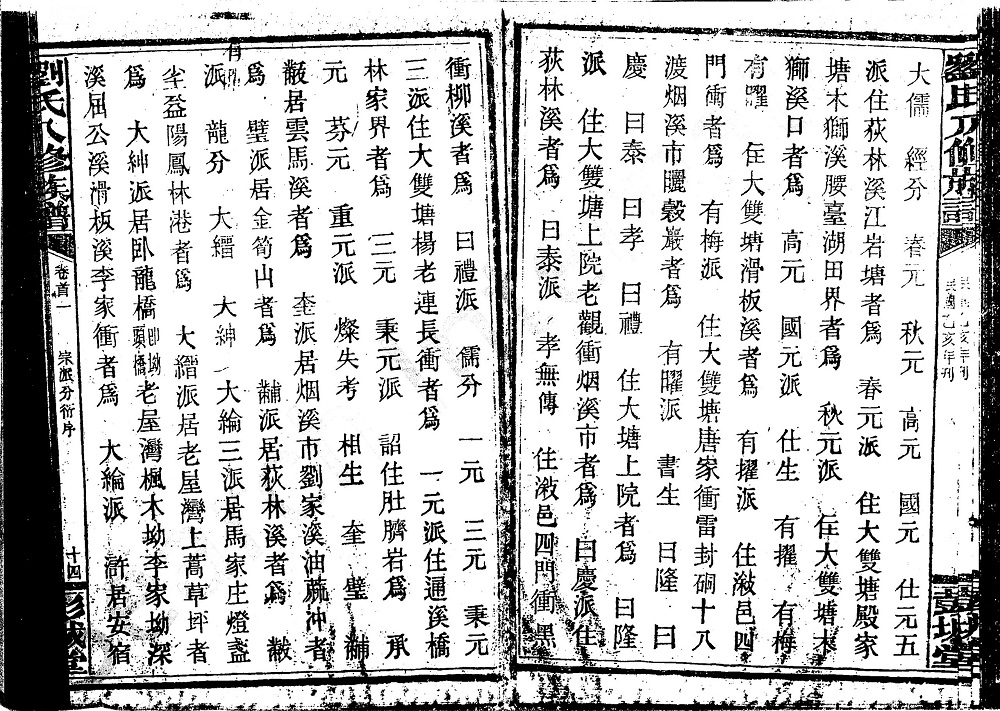 大儒 經分 春元 秋元 高元 國元 仕元五
派住荻林溪江岩塘者爲 春元派 住大雙塘殿家
塘木獅溪腰臺湖田界者爲 秋元派 住大雙塘木
獅溪口者爲 高元 國元派 仕生 有擢 有梅
有曜 住大雙塘滑板溪者爲 有擢派 住漵邑四
門衝者爲 有梅派 住大雙塘唐家衝雷封硐十八
渡烟溪市曬穀巖者爲 有曜派 書生 曰隆 曰
慶 曰泰 曰孝 曰禮 住大塘上院者爲 曰隆
派 住大雙塘上院老觀衝烟溪市者爲 曰慶派住
荻林溪者爲 曰泰派 孝無傳 住漵邑四門衝黑
衝柳溪者爲 曰禮派 儒分 一元 三元 秉元
三派住大雙塘楊老連長衝者爲 一元派住通溪橋
林家界者爲 三元 秉元派 韶住肚臍岩爲 承
元 芬元 重元派 燦失考 相生 奎 璧 黼
黻居雲馬溪者爲 奎派居烟溪市劉家溪油蔴沖者
爲 璧派居金筍山者爲 黼派居荻林溪者爲 黻
派 龍分 大縉 大紳 大綸三派居馬家庄燈盞
坐益陽鳳林港者爲 大縉派居老屋灣上蒿草坪者
爲 大紳派居臥龍橋老屋灣楓木坳李家坳深
溪屈公溪滑板溪李家衝者爲 大綸派 滸居安宿
劉氏八修族譜
卷首一
宗派分衍序
十四
彭城堂